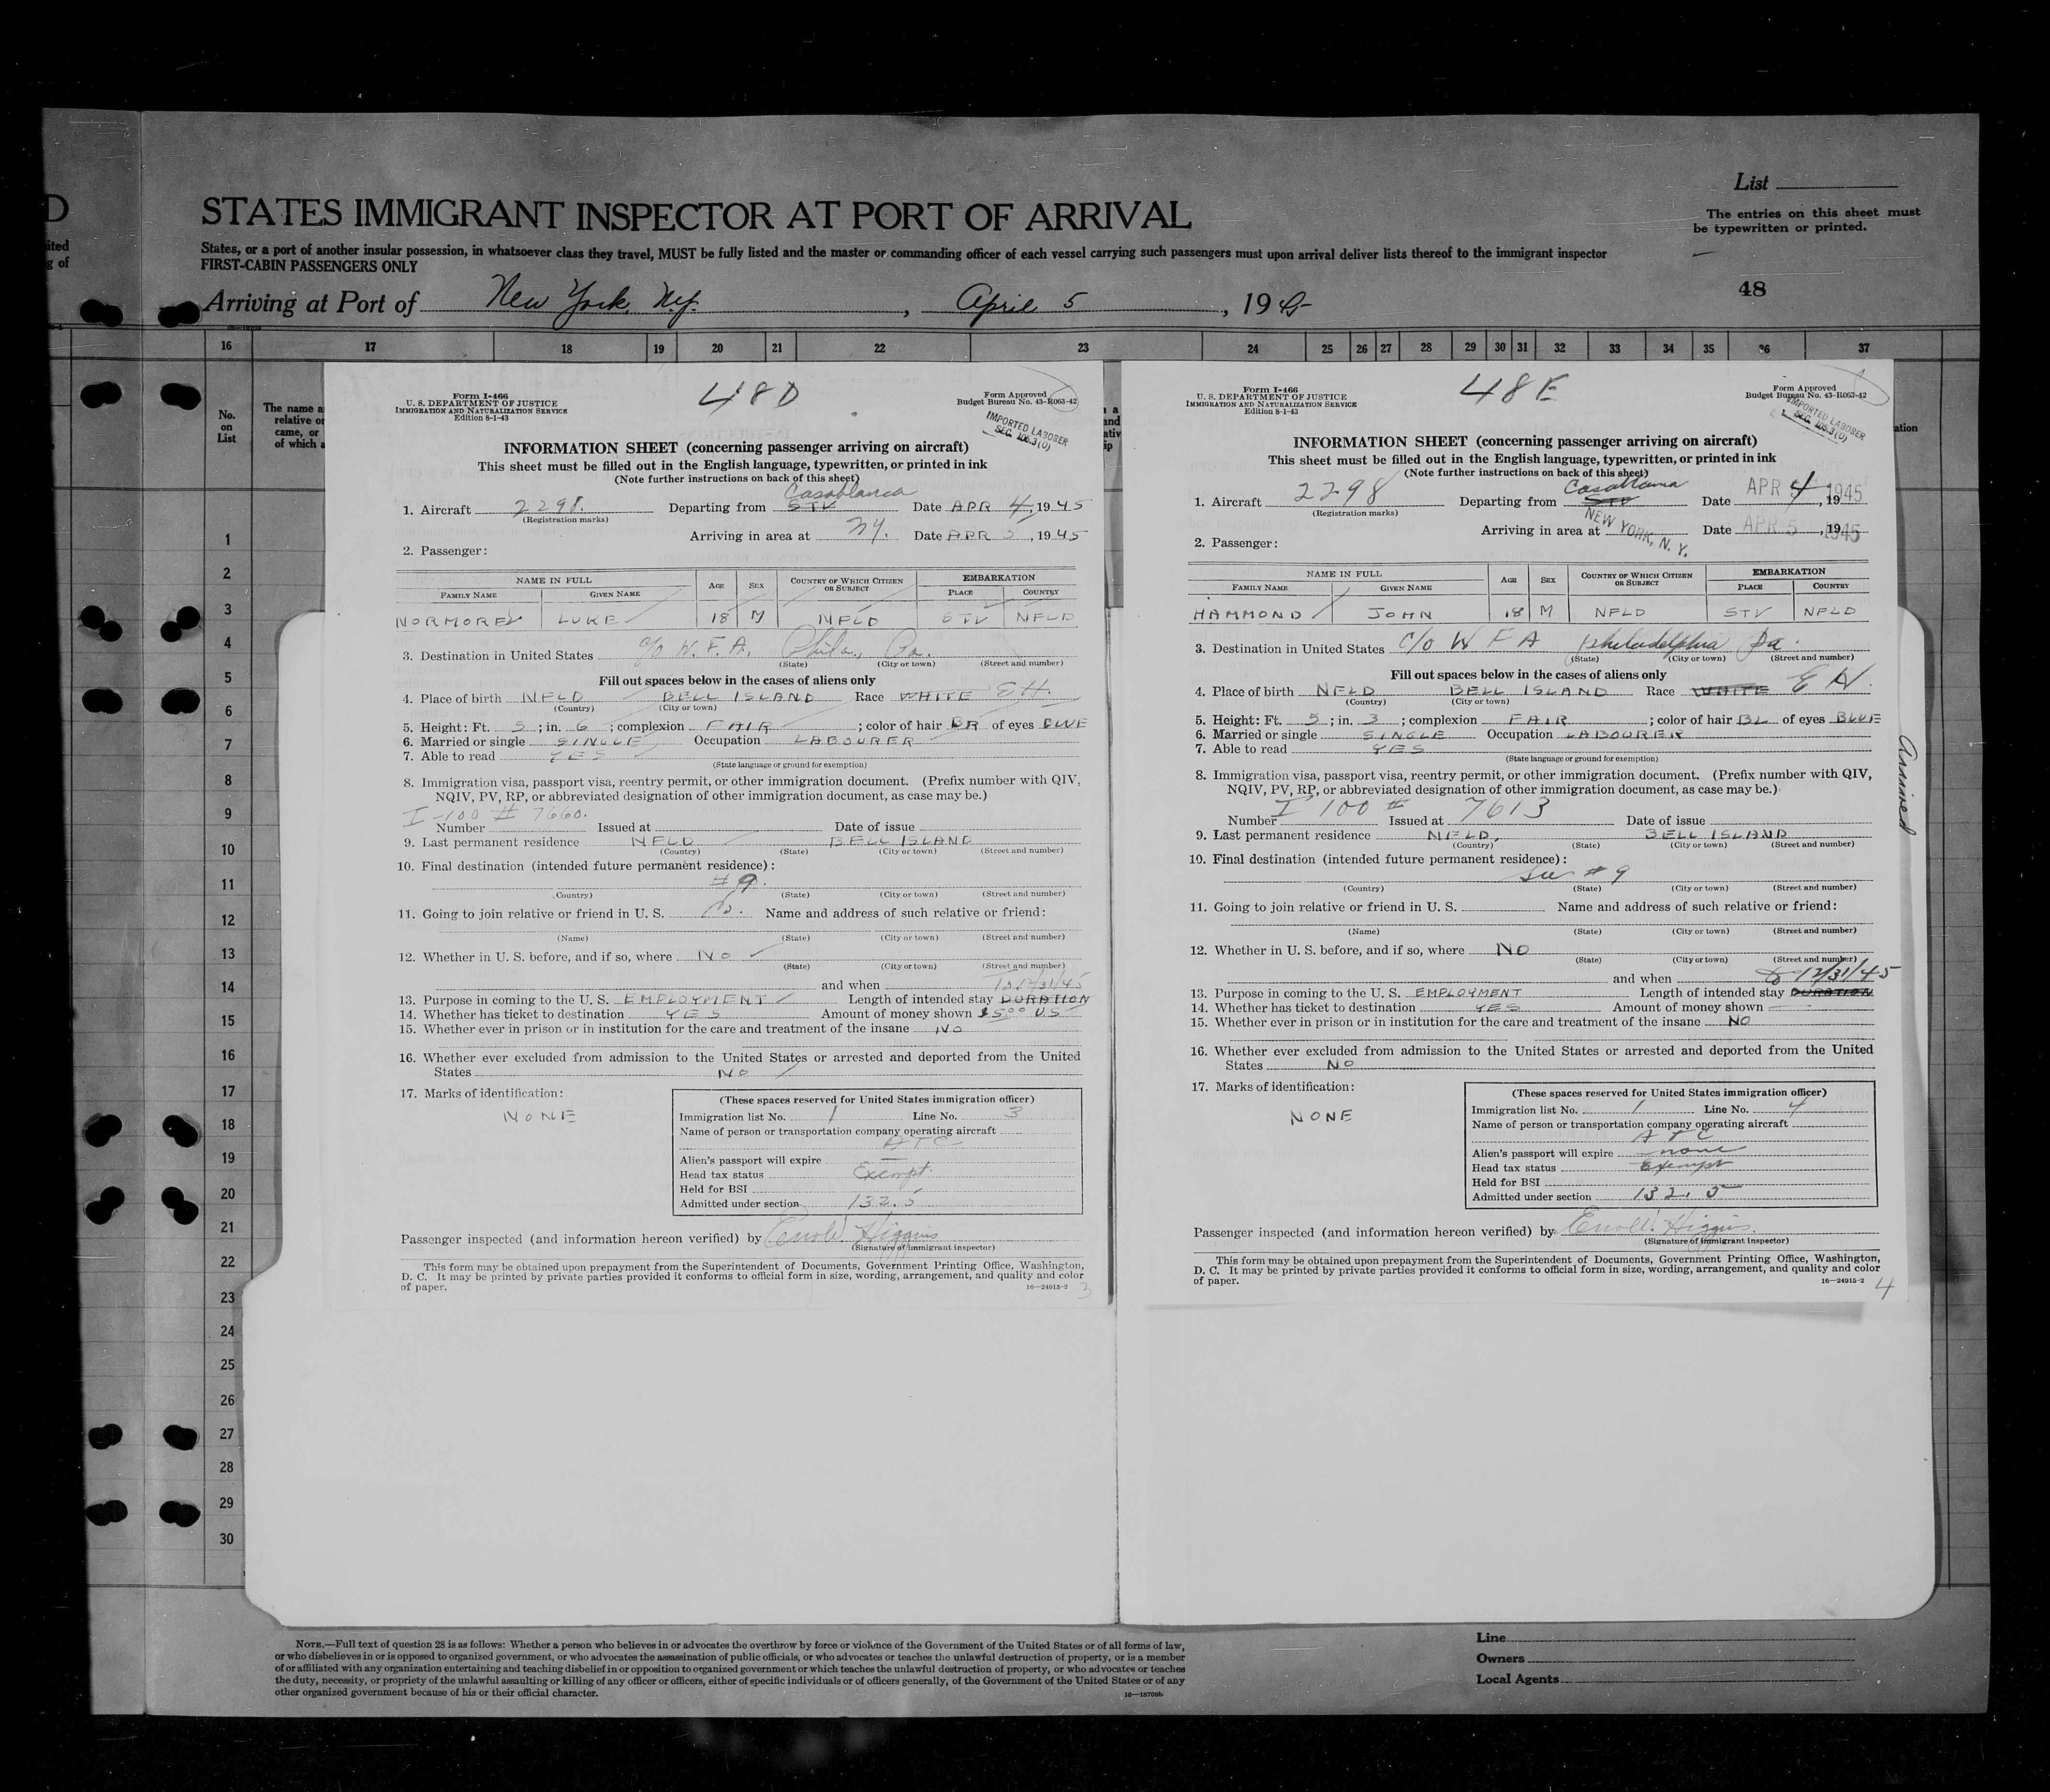 D
ited
g of
List
STATES IMMIGRANT INSPECTOR AT PORT OF ARRIVAL
The entries on this sheet must
be typewritten or printed.
States, or a port of another insular possession, in whatsoever class they travel, MUST be fully listed and the master or commanding officer of each vessel carrying such passengers must upon arrival deliver lists thereof to the immigrant inspector
FIRST-CABIN PASSENGERS ONLY
48
Arriving at Port of New York, N.Y. , April 5 , 1945
16 17 18 19 20 21 22 23 24 25 26 27 28 29 30 31 32 33 34 35 36 37
No.
on
List
The name a
relative or
came, or
of which a
1
2
3
4
5
6
7
8
9
10
11
12
13
14
15
16
17
18
19
20
21
22
23
24
25
26
27
28
29
30
48D
Form I-466
U. S. DEPARTMENT OF JUSTICE
IMMIGRATION AND NATURALIZATION SERVICE
Edition 8-1-43
Form Approved
Budget Bureau No. 43-R063-42
IMPORTED LABORER
SEC. 106.3(0)
INFORMATION SHEET (concerning passenger arriving on aircraft)
This sheet must be filled out in the English language, typewritten, or printed in ink
(Note further instructions on back of this sheet)
Casablanca
1. Aircraft 2298. Departing from STV Date APR 4, 1945
(Registration marks)
Arriving in area at NY. Date APR 5, 1945
2. Passenger:
NAME IN FULL AGE SEX COUNTRY OF WHICH CITIZEN OR SUBJECT EMBARKATION
FAMILY NAME GIVEN NAME PLACE COUNTRY
NORMORE LUKE 18 M NFLD STV NFLD
3. Destination in United States c/o W.F.A. Phila., Pa.
(State) (City or town) (Street and number)
Fill out spaces below in the cases of aliens only
4. Place of birth NFLD BELL ISLAND Race WHITE
(Country) (City or town)
5. Height: Ft. 5; in. 6; complexion FAIR; color of hair BR of eyes BLUE
6. Married or single SINGLE Occupation LABOURER
7. Able to read YES
(State language or ground for exemption)
8. Immigration visa, passport visa, reentry permit, or other immigration document. (Prefix number with QIV,
NQIV, PV, RP, or abbreviated designation of other immigration document, as case may be.)
I-100 # 7660.
Number Issued at Date of issue
9. Last permanent residence NFLD BELL ISLAND
(Country) (State) (City or town) (Street and number)
10. Final destination (intended future permanent residence):
# 9.
(Country) (State) (City or town) (Street and number)
11. Going to join relative or friend in U. S. Name and address of such relative or friend:
(Name) (State) (City or town) (Street and number)
12. Whether in U. S. before, and if so, where NO
(State) (City or town) (Street and number)
and when
To 12/31/45
13. Purpose in coming to the U. S. EMPLOYMENT Length of intended stay DURATION
14. Whether has ticket to destination YES Amount of money shown $5.00 US
15. Whether ever in prison or in institution for the care and treatment of the insane NO
16. Whether ever excluded from admission to the United States or arrested and deported from the United
States NO
17. Marks of identification:
NONE
(These spaces reserved for United States immigration officer)
Immigration list No. 1 Line No. 3
Name of person or transportation company operating aircraft
ATC
Alien's passport will expire —
Head tax status Exempt.
Held for BSI
Admitted under section 132.5
Passenger inspected (and information hereon verified) by Errol Higgins
(Signature of immigrant inspector)
This form may be obtained upon prepayment from the Superintendent of Documents, Government Printing Office, Washington,
D. C. It may be printed by private parties provided it conforms to official form in size, wording, arrangement, and quality and color
of paper.
16—24915-2
3
48E
Form I-466
U. S. DEPARTMENT OF JUSTICE
IMMIGRATION AND NATURALIZATION SERVICE
Edition 8-1-43
Form Approved
Budget Bureau No. 43-R063-42
IMPORTED LABORER
SEC. 106.3(0)
INFORMATION SHEET (concerning passenger arriving on aircraft)
This sheet must be filled out in the English language, typewritten, or printed in ink
(Note further instructions on back of this sheet)
Casablanca
1. Aircraft 2298 Departing from STV Date APR 4, 1945
(Registration marks)
Arriving in area at NEW YORK, N. Y. Date APR 5, 1945
2. Passenger:
NAME IN FULL AGE SEX COUNTRY OF WHICH CITIZEN OR SUBJECT EMBARKATION
FAMILY NAME GIVEN NAME PLACE COUNTRY
HAMMOND JOHN 18 M NFLD STV NFLD
3. Destination in United States C/O W F A Philadelphia Pa.
(State) (City or town) (Street and number)
Fill out spaces below in the cases of aliens only
4. Place of birth NFLD BELL ISLAND Race WHITE
(Country) (City or town)
5. Height: Ft. 5; in. 3; complexion FAIR; color of hair BL of eyes BLUE
6. Married or single SINGLE Occupation LABOURER
7. Able to read YES
(State language or ground for exemption)
8. Immigration visa, passport visa, reentry permit, or other immigration document. (Prefix number with QIV,
NQIV, PV, RP, or abbreviated designation of other immigration document, as case may be.)
I 100 # 7613
Number Issued at Date of issue
9. Last permanent residence NFLD, BELL ISLAND
(Country) (State) (City or town) (Street and number)
10. Final destination (intended future permanent residence):
See # 9
(Country) (State) (City or town) (Street and number)
11. Going to join relative or friend in U. S. Name and address of such relative or friend:
(Name) (State) (City or town) (Street and number)
12. Whether in U. S. before, and if so, where NO
(State) (City or town) (Street and number)
and when
12/31/45
13. Purpose in coming to the U. S. EMPLOYMENT Length of intended stay DURATION
14. Whether has ticket to destination YES Amount of money shown —
15. Whether ever in prison or in institution for the care and treatment of the insane NO
16. Whether ever excluded from admission to the United States or arrested and deported from the United
States NO
17. Marks of identification:
NONE
(These spaces reserved for United States immigration officer)
Immigration list No. 1 Line No. 4
Name of person or transportation company operating aircraft
ATC
Alien's passport will expire none
Head tax status Exempt
Held for BSI
Admitted under section 132.5
Passenger inspected (and information hereon verified) by Errol Higgins
(Signature of immigrant inspector)
This form may be obtained upon prepayment from the Superintendent of Documents, Government Printing Office, Washington,
D. C. It may be printed by private parties provided it conforms to official form in size, wording, arrangement, and quality and color
of paper.
16—24915-2
4
Arrived
NOTE.—Full text of question 28 is as follows: Whether a person who believes in or advocates the overthrow by force or violence of the Government of the United States or of all forms of law,
or who disbelieves in or is opposed to organized government, or who advocates the assassination of public officials, or who advocates or teaches the unlawful destruction of property, or is a member
of or affiliated with any organization entertaining and teaching disbelief in or opposition to organized government or which teaches the unlawful destruction of property, or who advocates or teaches
the duty, necessity, or propriety of the unlawful assaulting or killing of any officer or officers, either of specific individuals or of officers generally, of the Government of the United States or of any
other organized government because of his or their official character.
16—18709b
Line
Owners
Local Agents